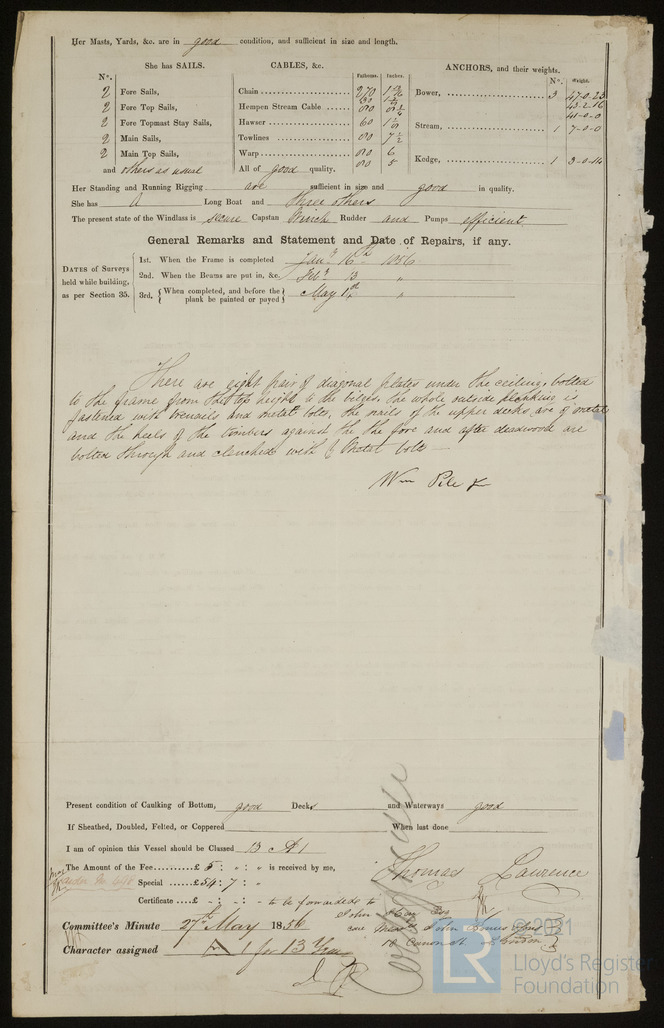 Her Masts, Yards, &c. are in good condition, and sufficient in size and length.
She has SAILS.
CABLES, &c.
ANCHORS, and their weights.
No.
Fathoms. Inches.
No. Weight.
2 Fore Sails,
2 Fore Top Sails,
2 Fore Topmast Stay Sails,
2 Main Sails,
2 Main Top Sails,
and others as usual
Chain 270
Hempen Stream Cable
Hawser 60
Towlines 90 7½
Warp 90 6
90 5
All of good quality.
Bower, 3 47-0-23
43-2-16
41-0-0
Stream, 1 7-0-0
Kedge, 1 3-0-14
Her Standing and Running Rigging are sufficient in size and good in quality.
She has A Long Boat and three others
The present state of the Windlass is secure Capstan Winch Rudder and Pumps efficient
General Remarks and Statement and Date of Repairs, if any.
DATES of Surveys held while building, as per Section 35.
1st. When the Frame is completed Jany 16th 1856
2nd. When the Beams are put in, &c. Feby 13 "
3rd, { When completed, and before the plank be painted or payed } May 1st "
There are eight pair of diagonal plates under the ceiling, bolted
to the frame from the top height to the bilges, the whole outside planking is
fastened with trenails and metal bolts, the nails of the upper decks are of metal
and the heels of the timbers against the the fore and after deadwood are
bolted through and clenched with Metal bolts —
Wm Pile Jr
Present condition of Caulking of Bottom, good Decks and Waterways good
If Sheathed, Doubled, Felted, or Coppered When last done
I am of opinion this Vessel should be Classed 13 A1
The Amount of the Fee £ 5 : " : " is received by me,
Special £54 : 7 : "
Thomas Lawrence
Certificate £ - : - : - to be forwarded to
John Hay Esq
care Messrs John &
London
Committee's Minute 27th May 1856
Character assigned A 1 for 13 Years
© 2021
LR
Lloyd's Register
Foundation